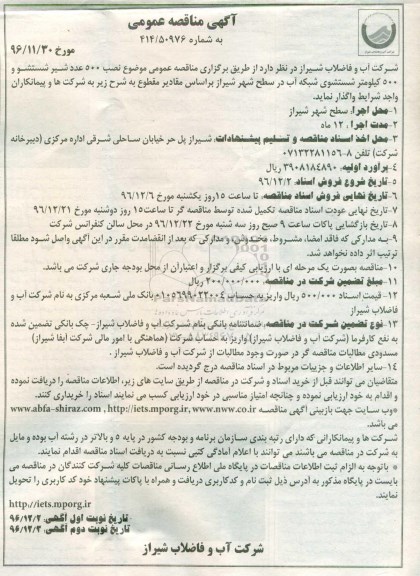 آگهی مناقصه عمومی
به شماره ۴۱۴/۵۰۹۷۶
مورخ ۹۶/۱۱/۳۰
شرکت آب و فاضلاب شیراز در نظر دارد از طریق برگزاری مناقصه عمومی موضوع نصب ۵۰۰ عدد شیر شستشو و
۵۰۰ کیلومتر شستشوی شبکه آب در سطح شهر شیراز براساس مقادیر مقطوع به شرح زیر به شرکت ها و پیمانکاران
واجد شرایط واگذار نماید.
۱-محل اجرا: سطح شهر شیراز
۲-مدت اجرا: ۱۲ ماه
۳-محل اخذ اسناد مناقصه و تسلیم پیشنهادات: شیراز پل حر خیابان ساحلی شرقی اداره مرکزی (دبیرخانه
شرکت) تلفن ۸-۰۷۱۳۲۲۸۱۱۵۶
۴-برآورد اولیه: ۳۹۰۸۱۸۴۸۹۰ ریال
۵-تاریخ شروع فروش اسناد: ۹۶/۱۲/۲
۶-تاریخ نهایی فروش اسناد مناقصه: تا ساعت ۱۵ روز یکشنبه مورخ ۹۶/۱۲/۶
۷-تاریخ نهایی عودت اسناد مناقصه تکمیل شده توسط مناقصه گر تا ساعت ۱۵ روز دوشنبه مورخ ۹۶/۱۲/۲۱
۸-تاریخ بازگشایی پاکات ساعت ۹ صبح روز سه شنبه مورخ ۹۶/۱۲/۲۲ در محل سالن کنفرانس شرکت
۹-به مدارکی که فاقد امضا، مشروط، مخدوش و مدارکی که بعد از انقضامدت مقرر در این آگهی واصل شود مطلقا
ترتیب اثر داده نخواهد شد.
۱۰-مناقصه بصورت یک مرحله ای با ارزیابی کیفی برگزار و اعتباران از محل بودجه جاری شرکت می باشد.
۱۱-مبلغ تضمین شرکت در مناقصه: ۲۰۰/۰۰۰/۰۰۰ ریال
۱۲-قیمت اسناد ۵۰۰/۰۰۰ ریال واریز به حساب ۰۱۰۵۶۹۹۰۲۳۰۰۴ بانک ملی شعبه مرکزی به نام شرکت آب و
فاضلاب شیراز
۱۳-نوع تضمین شرکت در مناقصه: ضمانتنامه بانکی بنام شرکت آب و فاضلاب شیراز- چک بانکی تضمین شده
به نفع کارفرما (شرکت آب و فاضلاب شیراز) واریز به حساب شرکت (هماهنگی با امور مالی شرکت آبفا شیراز)
مسدودی مطالبات مناقصه گر در صورت وجود مطالبات از شرکت آب و فاضلاب شیراز .
۱۴-سایر اطلاعات و جزییات مربوط در اسناد مناقصه درج گردیده است.
متقاضیان می توانند قبل از خرید اسناد و شرکت در مناقصه از طریق سایت های زیر، اطلاعات مناقصه را دریافت نموده
و اقدام به خود ارزیابی نموده و چنانچه امتیاز مناسبی در خود ارزیابی کسب می نمایند اسناد را خریداری کنند.
*وب سایت جهت بازبینی آگهی مناقصه www.abfa-shiraz.com ,http://iets.mporg.ir, www.nww.co.ir
می باشد.
شرکت ها و پیمانکارانی که دارای رتبه بندی سازمان برنامه و بودجه کشور در پایه ۵ و بالاتر در رشته آب بوده و مایل
به شرکت در مناقصه می باشند می توانند با اعلام آمادگی کتبی نسبت به دریافت اسناد مناقصه اقدام نمایند.
* باتوجه به الزام ثبت اطلاعات مناقصات در پایگاه ملی اطلاع رسانی مناقصات کلیه شرکت کنندگان در مناقصه می
بایست در پایگاه مذکور به آدرس ذیل ثبت نام و کدکاربری دریافت و همراه با پاکات پیشنهاد خود کد کاربری را تحویل
نمایند. http://iets.mporg.ir
تاریخ نوبت اول آگهی: ۹۶/۱۲/۲
تاریخ نوبت دوم آگهی: ۹۶/۱۲/۳
شرکت آب و فاضلاب شیراز